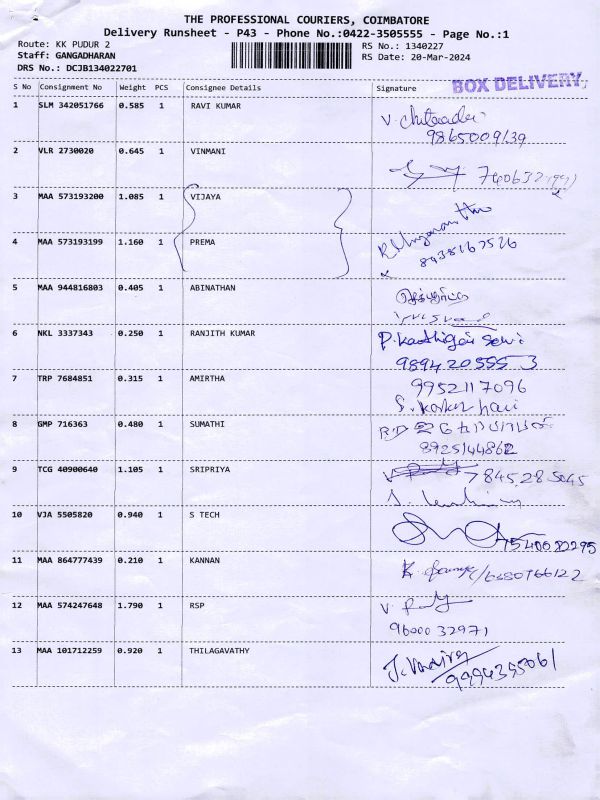 THE PROFESSIONAL COURIERS, COIMBATORE
Delivery Runsheet - P43 - Phone No.:0422-3505555 - Page No.:1
Route: KK PUDUR 2 RS No.: 1340227
Staff: GANGADHARAN RS Date: 20-Mar-2024
DRS No.: DCJB134022701
BOX DELIVERY
S No Consignment No Weight PCS Consignee Details Signature
1 SLM 342051766 0.585 1 RAVI KUMAR V. Chitraadevi
9865009139
2 VLR 2730020 0.645 1 VINMANI
3 MAA 573193200 1.085 1 VIJAYA
4 MAA 573193199 1.160 1 PREMA
8438167526
5 MAA 944816803 0.405 1 ABINATHAN
6 NKL 3337343 0.250 1 RANJITH KUMAR P. Kaathigai Selvi
9894205553
7 TRP 7684851 0.315 1 AMIRTHA 9952117096
8 GMP 716363 0.480 1 SUMATHI
8925144862
9 TCG 40900640 1.105 1 SRIPRIYA 7845285045
10 VJA 5505820 0.940 1 S TECH
11 MAA 864777439 0.210 1 KANNAN
12 MAA 574247648 1.790 1 RSP
9600032971
13 MAA 101712259 0.920 1 THILAGAVATHY
9994395061